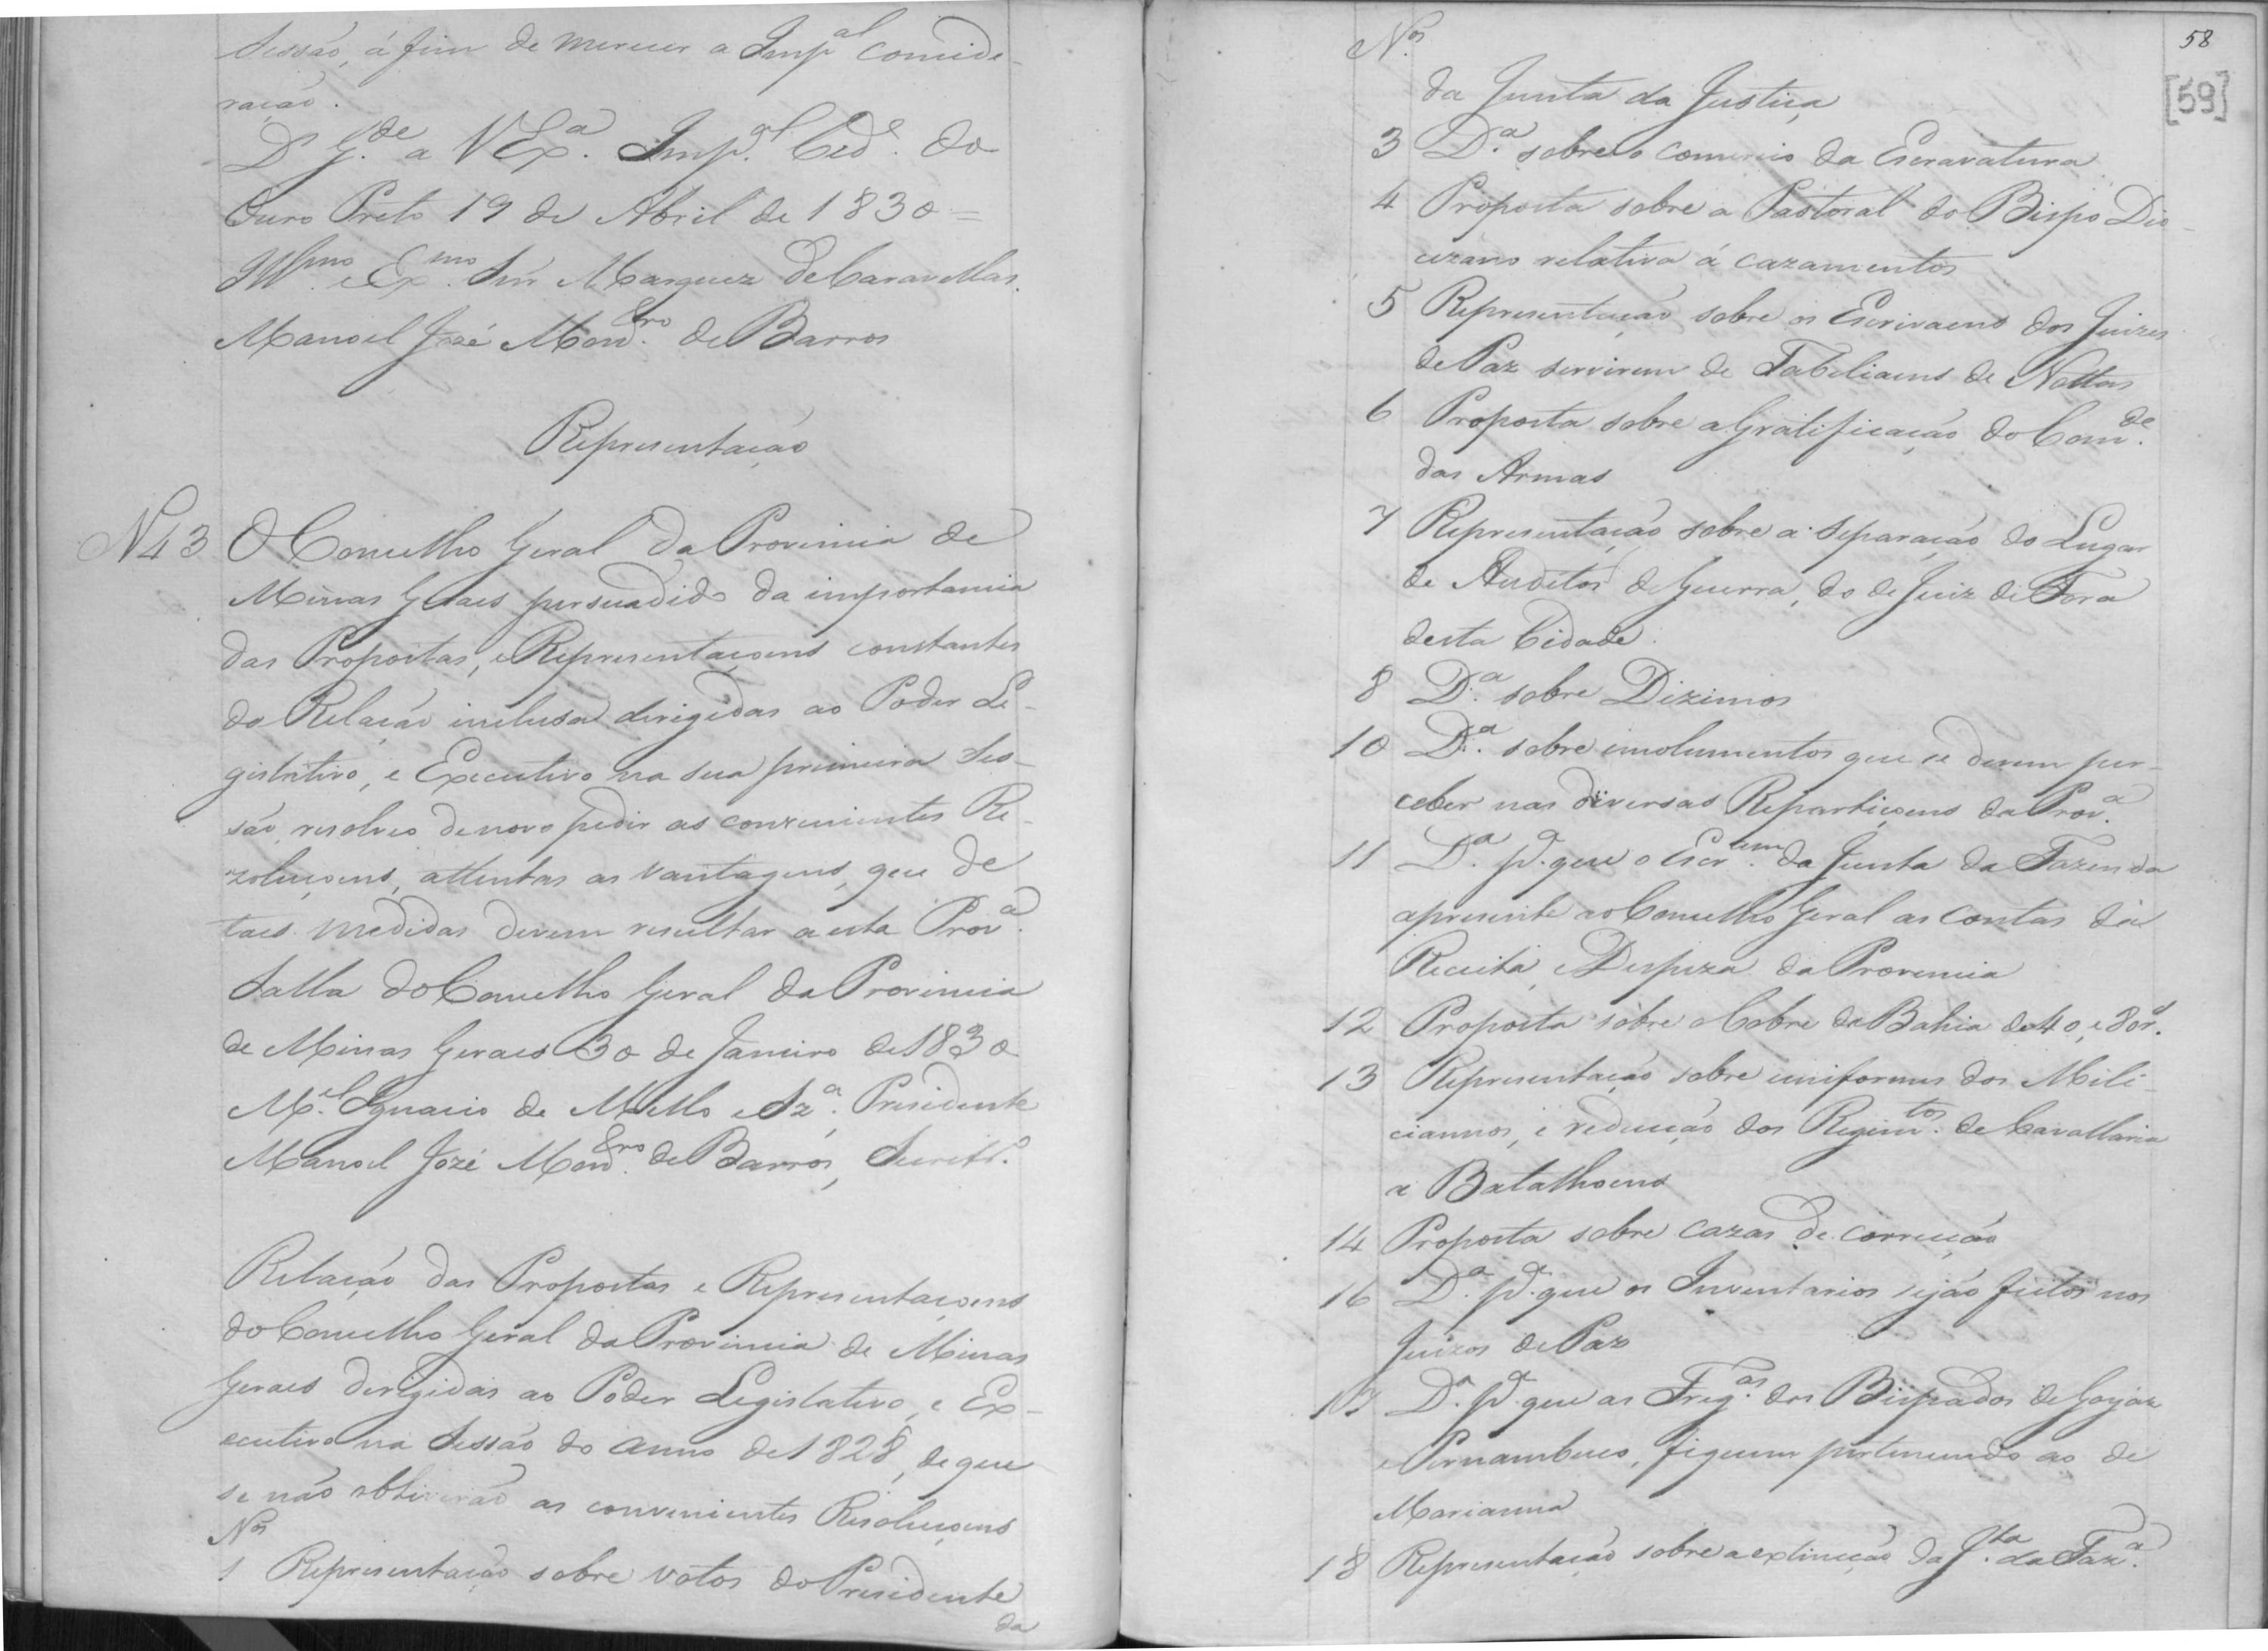 Sessão, á fim de merecer a Imp.al conside-
ração.
D.s G.de a V Ex.a Imp.al Cid.e do
Ouro Preto 19 de Abril de 1830 =
Ill.mo e Ex.mo Snr Marquez de Caravellas.
Manoel José Montr.o de Barros
Representação
N 43 O Concelho Geral da Provincia de
Minas Geraes persuadido da importancia
das Propostas, e Representaçoens constantes
da Relação inclusa dirigidas ao Poder Le-
gislativo, e Executivo na sua primeira Ses-
são, resolveo de novo pedir as convenientes Re-
zoluçoens, attentas as vantagens, que de
taes medidas devem resultar a esta Prov.a
Salla do Concelho Geral da Provincia
de Minas Geraes 30 de Janeiro de 1830
M.el Ignacio de Mello e Sz.a, Presidente
Manoel Jozé Montr.o de Barros, Secretr.o
Relação das Propostas e Representaçoens
do Concelho Geral da Provincia de Minas
Geraes dirigidas ao Poder Legislativo, e Ex-
ecutivo na Sessão do anno de 1828, de que
se não obtiverão as convenientes Resoluçoens
N.os
1 Representação sobre votos do Presidente
da
58
[59]
N.os
da Junta da Justiça
3 D.a sobre o comercio da Escravatura
4 Proposta sobre a Pastoral do Bispo Dio-
cezano relativa á cazamentos
5 Representação sobre os Escrivaens dos Juizes
de Paz servirem de Tabeliaens de Nottas
6 Proposta sobre a Gratificação do Com.de
das Armas
7 Representação sobre a separação do Lugar
de Auditor de Guerra, do de Juiz de Fora
desta Cidade.
8 D.a sobre Dizimos
10 D.a sobre imolumentos que se devem per-
ceber nas diversas Repartiçoens da Prov.a
11 D.a p.a que o Escr.am da Junta da Fazenda
apresente ao Concelho Geral as contas da
Receita, e Despeza da Provincia
12 Proposta sobre o Cobre da Bahia de 40, e 80r.s
13 Representação sobre uniformes dos Mili-
ciannos, e reducção dos Regim.tos de Cavallaria
a Batalhoens
14 Proposta sobre cazas de correcção
16 D.a p.a que os Inventarios sejão feitos nos
Juizos de Paz
17 D.a p.a que as Freg.as dos Bispados de Goyaz
e Pernambuco, fiquem pertencendo ao de
Marianna
18 Representação sobre a extincção da J.ta da Faz.a